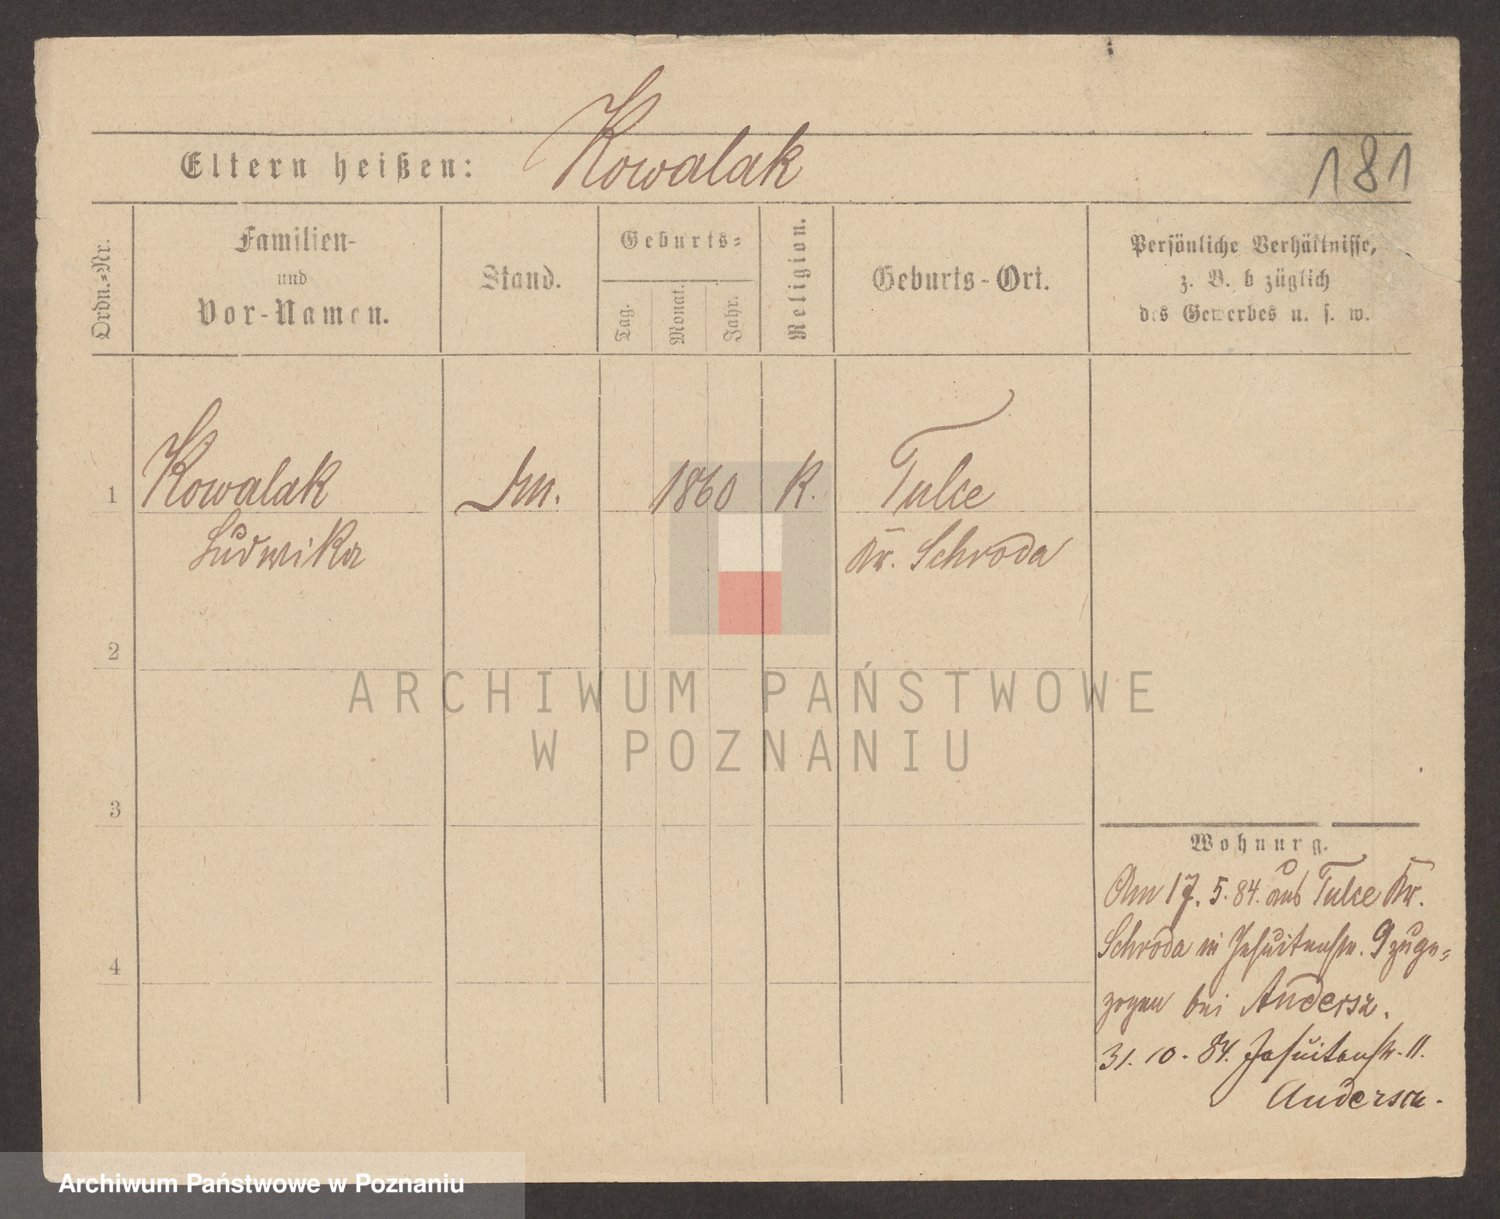 Kowalak
Eltern heißen:
181
Ordn.-Nr.
Familien-
und
Vor-Namen.
Stand.
Geburts-
Tag.
Monat.
Jahr.
Religion.
Geburts-Ort.
Persönliche Verhältnisse,
z. B. b züglich
des Gewerbes u. s. w.
1
Kowalak
1860
K.
Tulce
Ludwika
Kr. Schroda
2
ARCHIWUM PAŃSTWOWE
W POZNANIU
3
Wohnung.
Am 17.5.84. aus Tulce Kr.
Schroda in Jesuitenstr. 9 zuge-
4
zogen bei Andersz.
31.10.84. Jesuitenstr. 11.
Andersch.
Archiwum Państwowe w Poznaniu